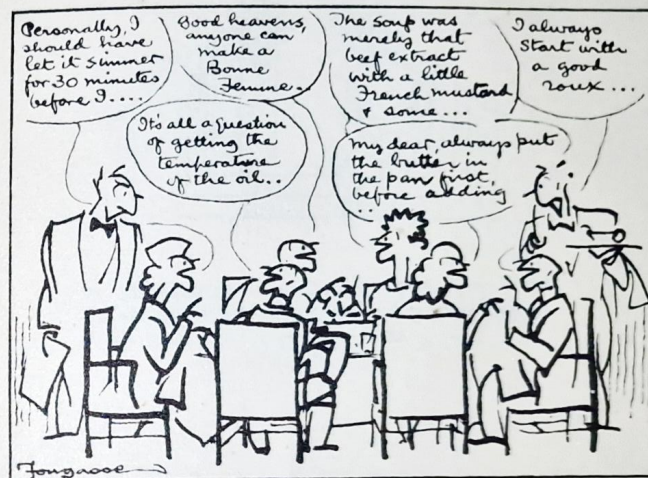 Personally, I
should have
let it simmer
for 30 minutes
before I....
Good heavens,
anyone can
make a
Bonne
Femme.
The soup was
merely that
beef extract
with a little
French mustard
& some...
I always
start with
a good
roux...
It's all a question
of getting the
temperature
of the oil..
my dear, always put
the butter in
the pan first,
before adding
..
Fougasse